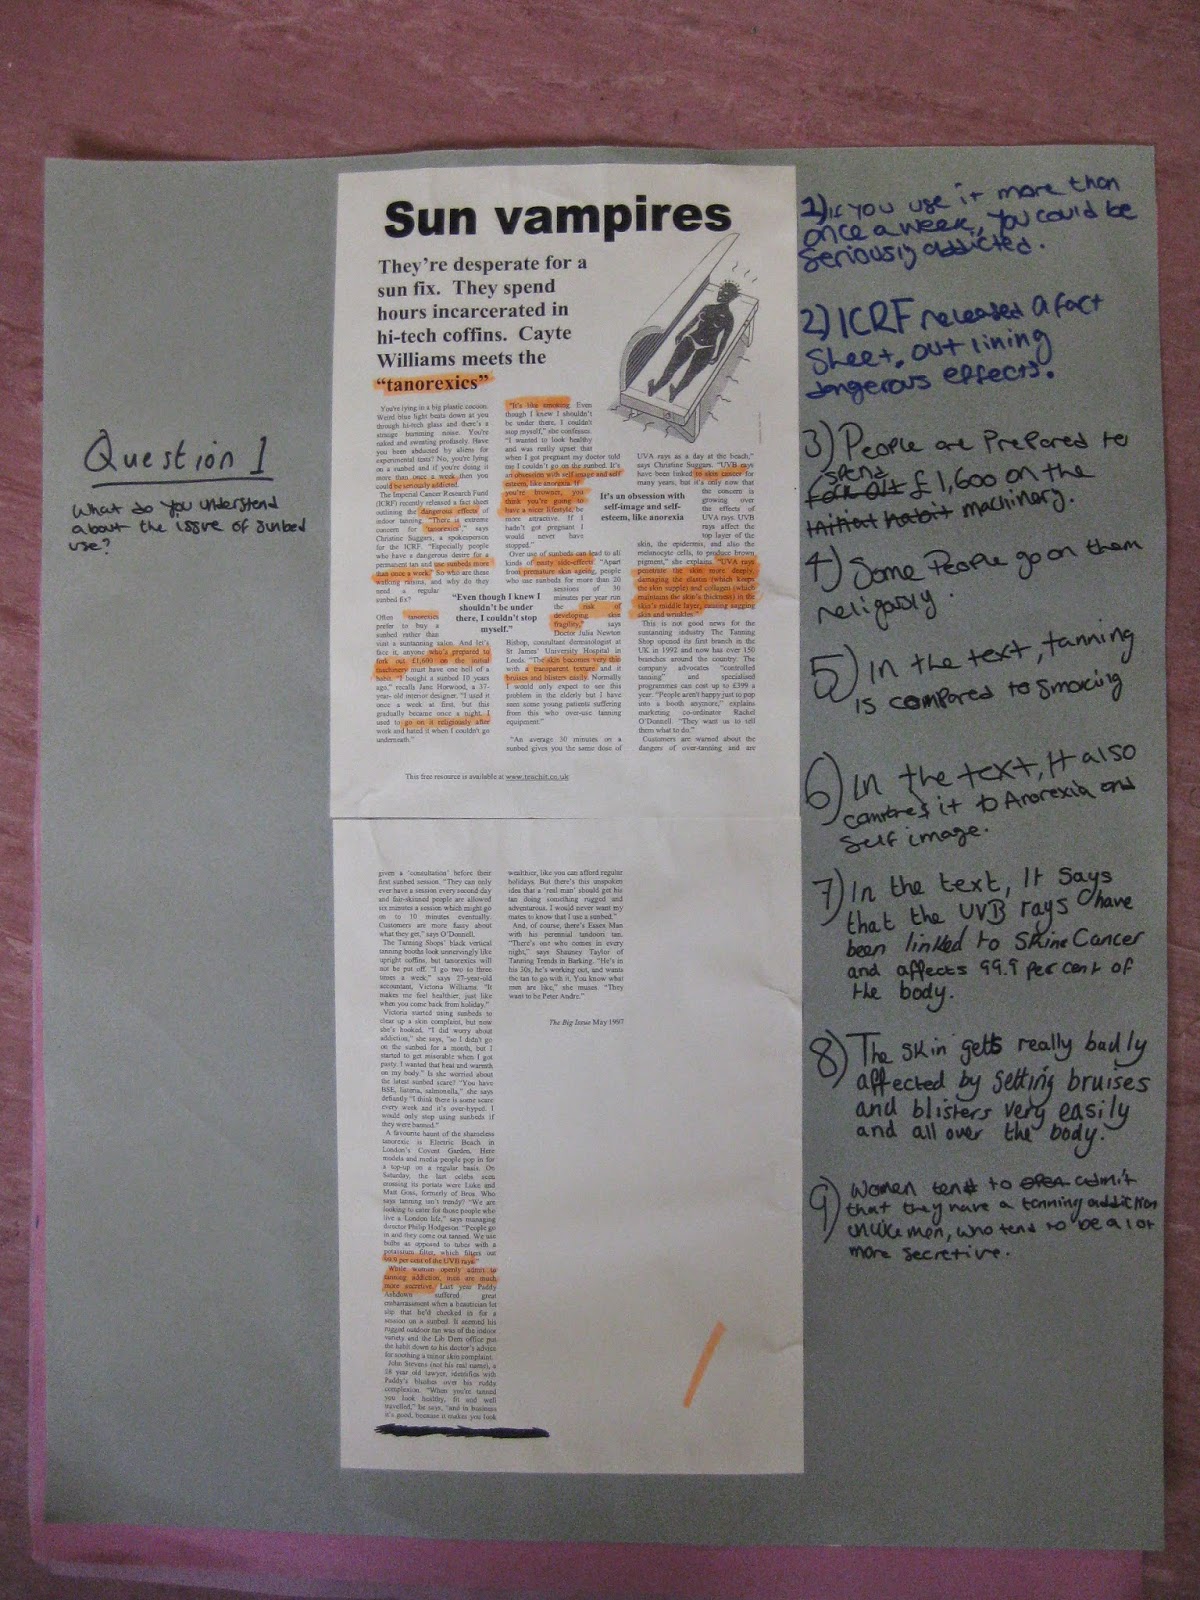 Question 1
What do you understand
about the issue of sunbed
use?
Sun vampires
They're desperate for a
sun fix. They spend
hours incarcerated in
hi-tech coffins. Cayte
Williams meets the
"tanorexics"
You're lying in a big plastic cocoon.
Weird blue light beats down at you
through hi-tech glass and there's a
strange humming noise. You're
naked and sweating profusely. Have
you been abducted by aliens for
experimental tests? No, you're lying
on a sunbed and if you're doing it
more than once a week then you
could be seriously addicted.
The Imperial Cancer Research Fund
(ICRF) recently released a fact sheet
outlining the dangerous effects of
indoor tanning. "There is extreme
concern for "tanorexics"," says
Christine Suggars, a spokesperson
for the ICRF. "Especially people
who have a dangerous desire for a
permanent tan and use sunbeds more
than once a week." So who are these
walking raisins, and why do they
need a regular
sunbed fix?
Often tanorexics
prefer to buy a
sunbed rather than
visit a suntanning salon. And let's
face it, anyone who's prepared to
fork out £1,600 on the initial
machinery must have one hell of a
habit. "I bought a sunbed 10 years
ago," recalls Jane Horwood, a 37-
year-old interior designer. "I used it
once a week at first, but this
gradually became once a night. I
used to go on it religiously after
work and hated it when I couldn't go
underneath."
"It's like smoking. Even
though I knew I shouldn't
be under there, I couldn't
stop myself," she confesses.
"I wanted to look healthy
and was really upset that
when I got pregnant my doctor told
me I couldn't go on the sunbed. It's
an obsession with self image and self
esteem, like anorexia. If
you're browner, you
think you're going to
have a nicer lifestyle, be
more attractive. If I
hadn't got pregnant I
would never have
stopped."
Over use of sunbeds can lead to all
kinds of nasty side-effects. "Apart
from premature skin ageing, people
who use sunbeds for more than 20
sessions of 30
minutes per year run
the risk of
developing skin
fragility," says
Doctor Julia Newton
Bishop, consultant dermatologist at
St James' University Hospital in
Leeds. "The skin becomes very thin
with a transparent texture and it
bruises and blisters easily. Normally
I would only expect to see this
problem in the elderly but I have
seen some young patients suffering
from this who over-use tanning
equipment."
"An average 30 minutes on a
sunbed gives you the same dose of
"Even though I knew I
shouldn't be under
there, I couldn't stop
myself."
UVA rays as a day at the beach,"
says Christine Suggars. "UVB rays
have been linked to skin cancer for
many years, but it's only now that
the concern is
growing over
the effects of
UVA rays. UVB
rays affect the
top layer of the
skin, the epidermis, and also the
melanocyte cells, to produce brown
pigment," she explains. "UVA rays
penetrate the skin more deeply,
damaging the elastin (which keeps
the skin supple) and collagen (which
maintains the skin's thickness) in the
skin's middle layer, causing sagging
skin and wrinkles."
This is not good news for the
suntanning industry. The Tanning
Shop opened its first branch in the
UK in 1992 and now has over 150
branches around the country. The
company advocates "controlled
tanning" and specialised
programmes can cost up to £399 a
year. "People aren't happy just to pop
into a booth anymore," explains
marketing co-ordinator Rachel
O'Donnell. "They want us to tell
them what to do."
Customers are warned about the
dangers of over-tanning and are
It's an obsession with
self-image and self-
esteem, like anorexia
This free resource is available at www.teachit.co.uk
given a 'consultation' before their
first sunbed session. "They can only
ever have a session every second day
and fair-skinned people are allowed
six minutes a session which might go
on to 10 minutes eventually.
Customers are more fussy about
what they get," says O'Donnell.
The Tanning Shops' black vertical
tanning booths look unnervingly like
upright coffins, but tanorexics will
not be put off. "I go two to three
times a week," says 27-year-old
accountant, Victoria Williams. "It
makes me feel healthier, just like
when you come back from holiday."
Victoria started using sunbeds to
clear up a skin complaint, but now
she's hooked. "I did worry about
addiction," she says, "so I didn't go
on the sunbed for a month, but I
started to get miserable when I got
pasty. I wanted that heat and warmth
on my body." Is she worried about
the latest sunbed scare? "You have
BSE, listeria, salmonella," she says
defiantly "I think there is some scare
every week and it's over-hyped. I
would only stop using sunbeds if
they were banned."
A favourite haunt of the shameless
tanorexic is Electric Beach in
London's Covent Garden. Here
models and media people pop in for
a top-up on a regular basis. On
Saturday, the last celebs seen
crossing its portals were Luke and
Matt Goss, formerly of Bros. Who
says tanning isn't trendy? "We are
looking to cater for those people who
live a London life," says managing
director Philip Hodgeson. "People go
in and they come out tanned. We use
bulbs as opposed to tubes with a
potassium filter, which filters out
99.9 per cent of the UVB rays."
While women openly admit to
tanning addiction, men are much
more secretive. Last year Paddy
Ashdown suffered great
embarrassment when a beautician let
slip that he'd checked in for a
session on a sunbed. It seemed his
rugged outdoor tan was of the indoor
variety and the Lib Dem office put
the habit down to his doctor's advice
for soothing a minor skin complaint.
John Stevens (not his real name), a
28 year old lawyer, identifies with
Paddy's blushes over his ruddy
complexion. "When you're tanned
you look healthy, fit and well
travelled," he says, "and in business
it's good, because it makes you look
wealthier, like you can afford regular
holidays. But there's this unspoken
idea that a 'real man' should get his
tan doing something rugged and
adventurous. I would never want my
mates to know that I use a sunbed."
And, of course, there's Essex Man
with his perennial tandoori tan.
"There's one who comes in every
night," says Shauney Taylor of
Tanning Trends in Barking. "He's in
his 30s, he's working out, and wants
the tan to go with it. You know what
men are like," she muses. "They
want to be Peter Andre."
The Big Issue May 1997
1) If you use it more than
once a week, you could be
seriously addicted.
2) ICRF released a fact
sheet, out lining
dangerous effects.
3) People are prepared to
spend
fork out £1,600 on the
initial habit machinery.
4) Some people go on them
religously.
5) In the text, tanning
is compared to smoking
6) In the text, It also
it to Anorexia and
Self image.
7) In the text, It says
that the UVB rays have
been linked to Skine Cancer
and affects 99.9 per cent of
the body.
8) The skin gets really badly
affected by getting bruises
and blisters very easily
and all over the body.
9) Women tend to admit
that they have a tanning addiction
unlike men, who tend to be a lot
more secretive.